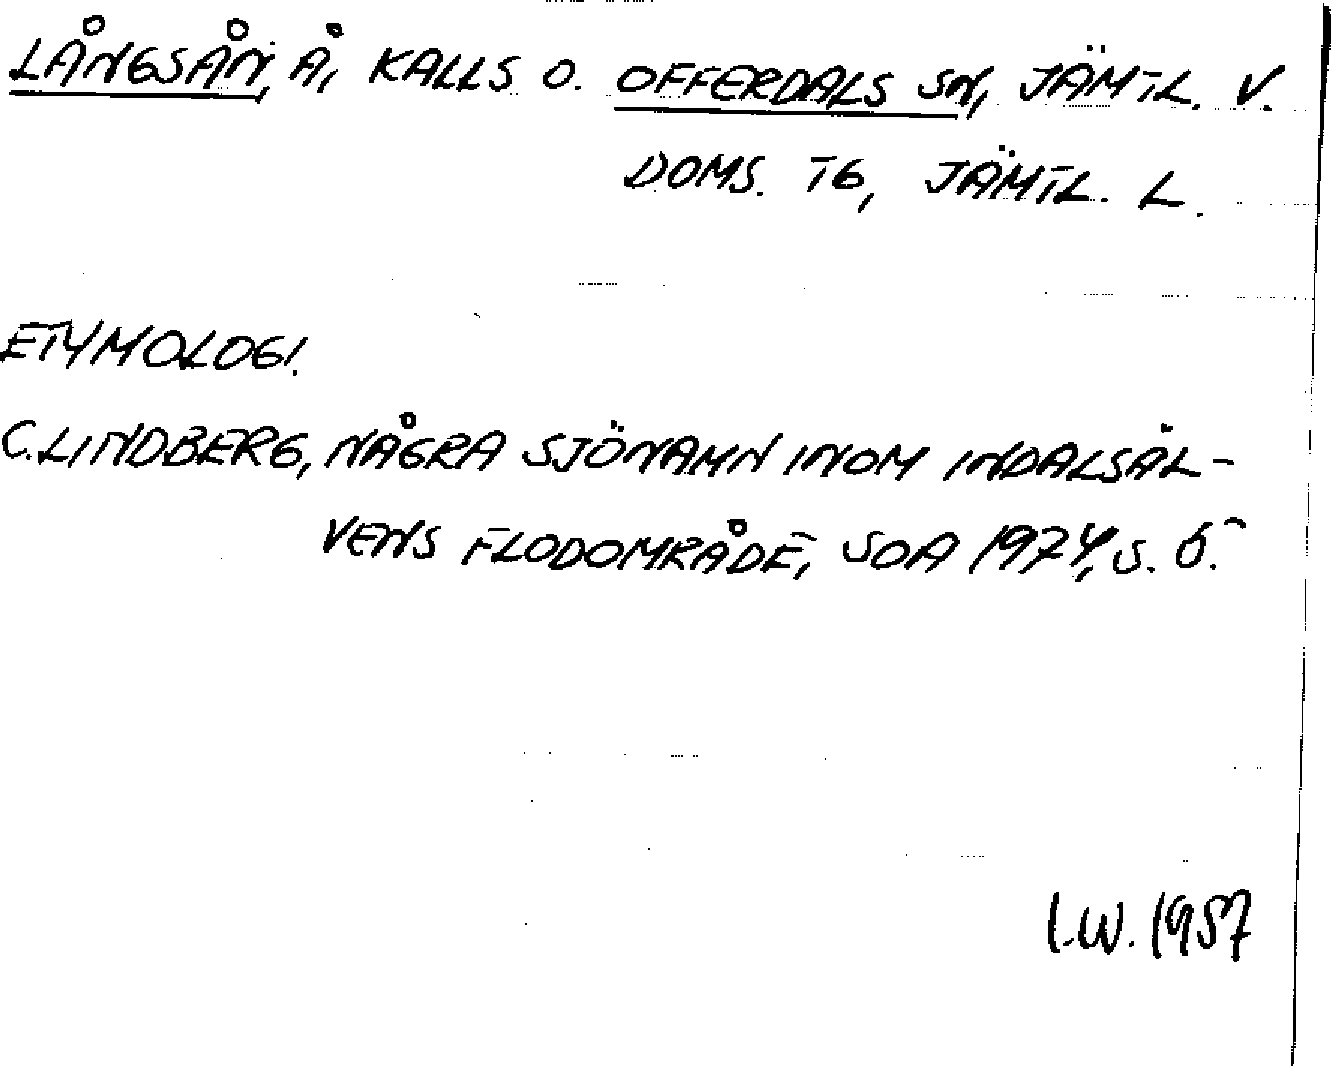 LÅNGSÅN, Å, KALLS O. OFFERDALS SN, JÄMTL. V.
DOMS. TG, JÄMTL. L.
ETYMOLOGI.
C. LINDBERG, NÅGRA SJÖNAMN INOM INDALSÄL-
VENS FLODOMRÅDE, SOA 1974, S. 5.
I.W. 1957